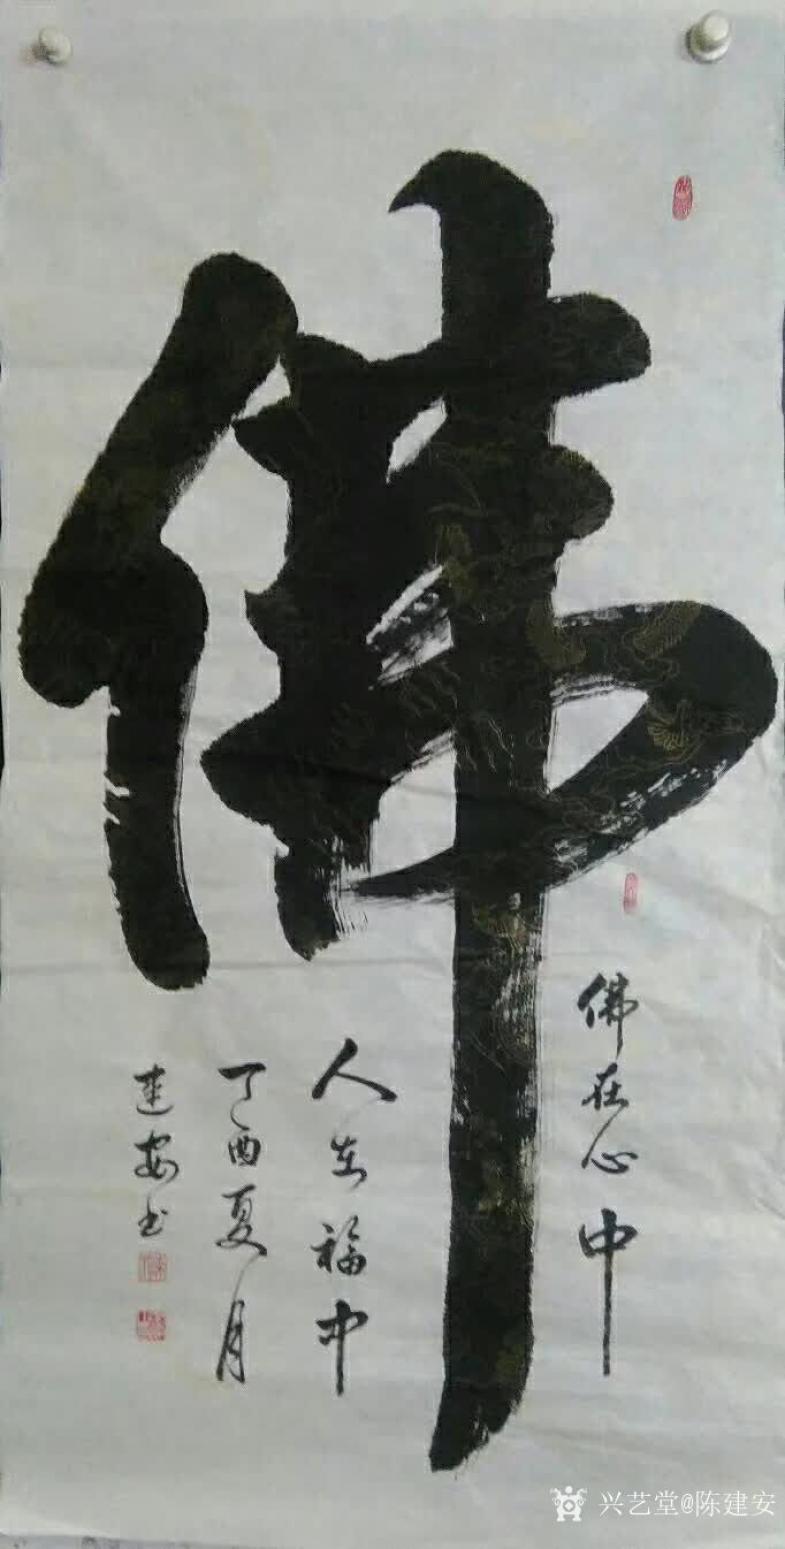 佛
佛在心中
人在福中
丁酉夏月
建安书
兴艺堂@陈建安